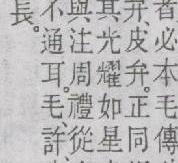 者必本毛傳
皮弁。正同
其光耀如星
與注周禮從
不通耳。毛、許
長。